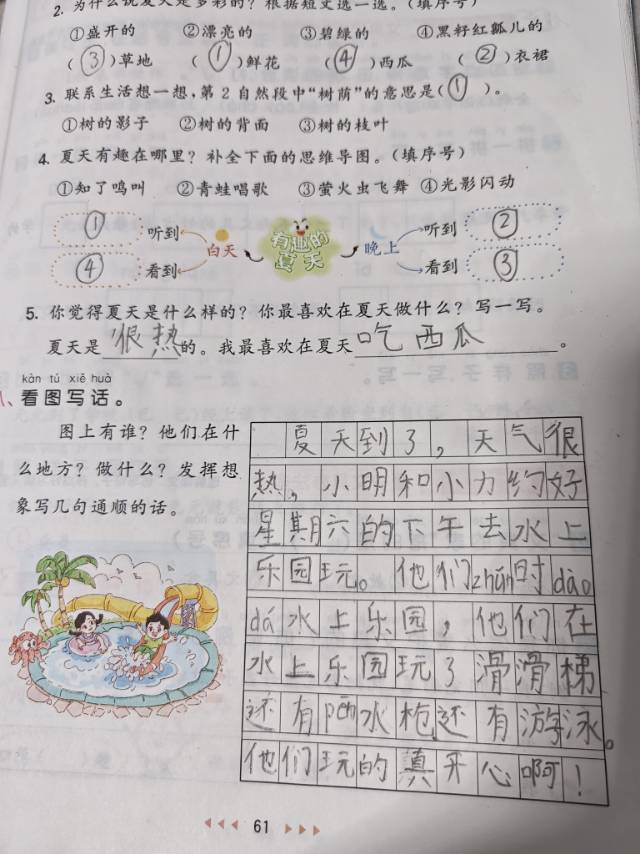 2. 为什么说夏天是多彩的？根据短文选一选。（填序号）
①盛开的 ②漂亮的 ③碧绿的 ④黑籽红瓤儿的
（③）草地 （①）鲜花 （④）西瓜 （②）衣裙
3. 联系生活想一想，第2自然段中“树荫”的意思是（①）。
①树的影子 ②树的背面 ③树的枝叶
4. 夏天有趣在哪里？补全下面的思维导图。（填序号）
①知了鸣叫 ②青蛙唱歌 ③萤火虫飞舞 ④光影闪动
① 听到 听到 ②
白天 有趣的夏天 晚上
④ 看到 看到 ③
5. 你觉得夏天是什么样的？你最喜欢在夏天做什么？写一写。
夏天是很热的。我最喜欢在夏天吃西瓜。
kàn tú xiě huà
看图写话。
图上有谁？他们在什
么地方？做什么？发挥想
象写几句通顺的话。
夏天到了，天气很
热，小明和小力约好
星期六的下午去水上
乐园玩。他们zhǔn时dào
dá水上乐园，他们在
水上乐园玩了滑滑梯
还有pēn水枪，还有游泳。
他们玩的真开心啊！
61